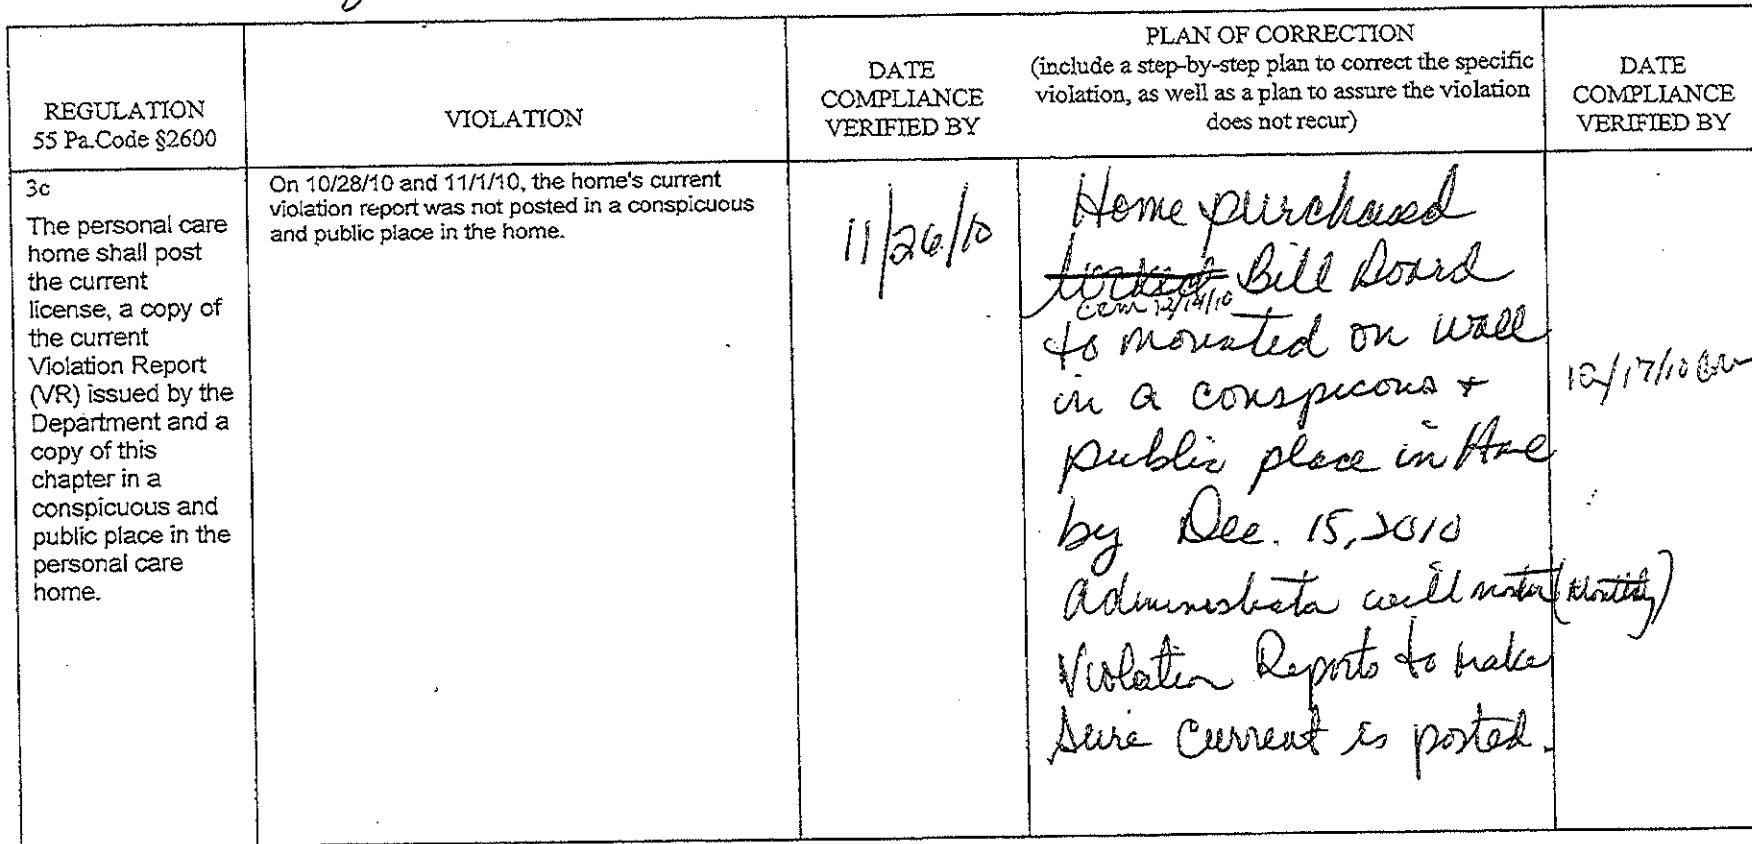 REGULATION
55 Pa.Code §2600
VIOLATION
DATE
COMPLIANCE
VERIFIED BY
PLAN OF CORRECTION
(include a step-by-step plan to correct the specific
violation, as well as a plan to assure the violation
does not recur)
DATE
COMPLIANCE
VERIFIED BY
3c
The personal care
home shall post
the current
license, a copy of
the current
Violation Report
(VR) issued by the
Department and a
copy of this
chapter in a
conspicuous and
public place in the
personal care
home.
On 10/28/10 and 11/1/10, the home's current
violation report was not posted in a conspicuous
and public place in the home.
11/26/10
Home purchased
Bill Board
12/14/10
to mounted on wall
in a conspicous +
public place in
by Dec. 15, 2010
Administrator will (Monthly)
Violation Reports to make
sure Current is posted.
12/17/10